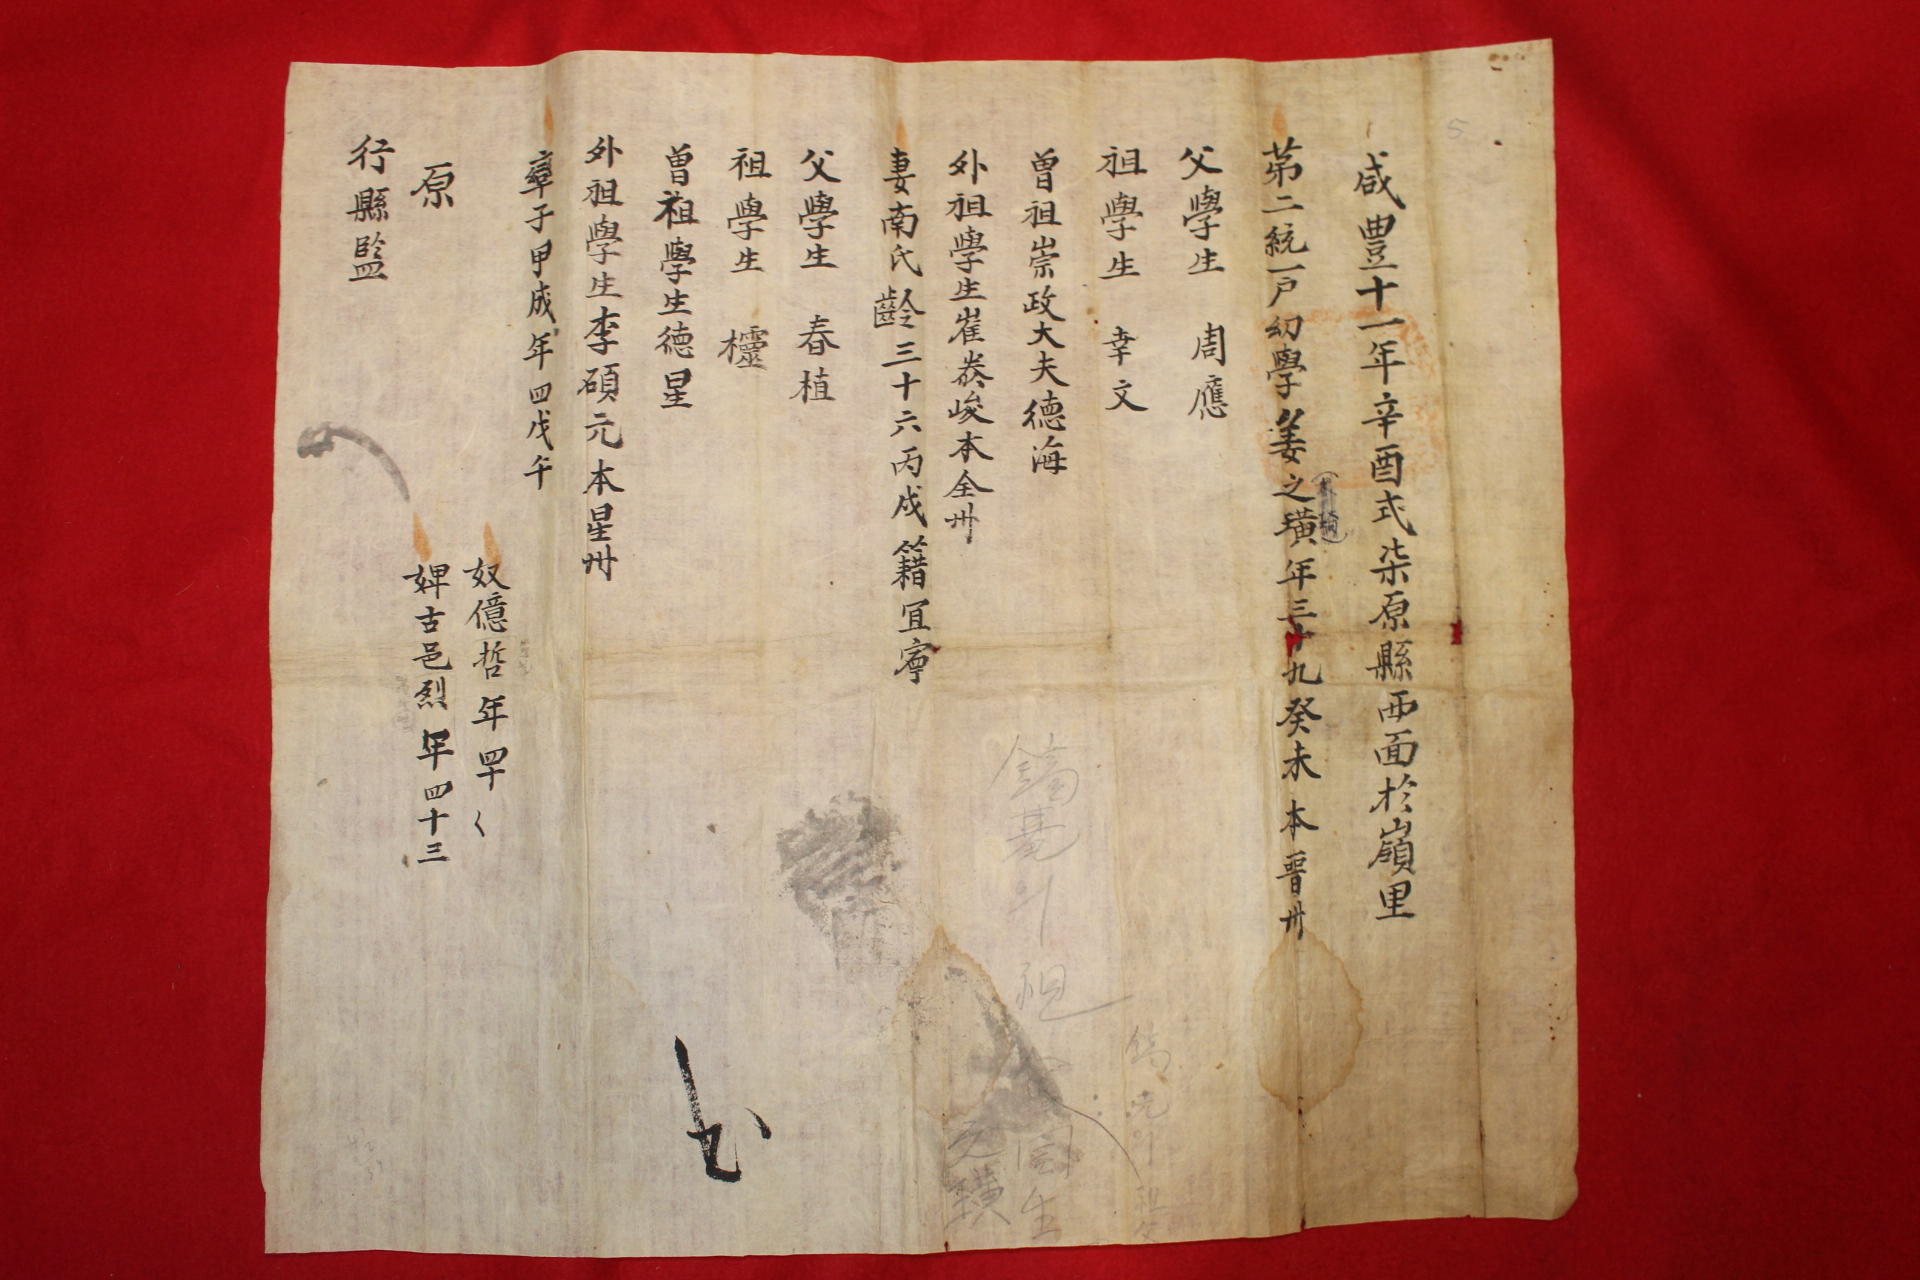 咸豊十一年辛酉式柒原縣西面於嶺里
苐二統一戶幼學姜之璜年三十九癸未本晋州
父學生周應
祖學生幸文
曽祖崇政大夫德海
外祖學生崔峻本全州
妻南氏齡三十六丙戌籍冝寧
父學生春植
祖學生欞
曽祖學生德星
外祖學生李碩元本星州
率子甲成年四戊午
奴億哲年四十
婢古邑烈年四十三
原
行縣監
5